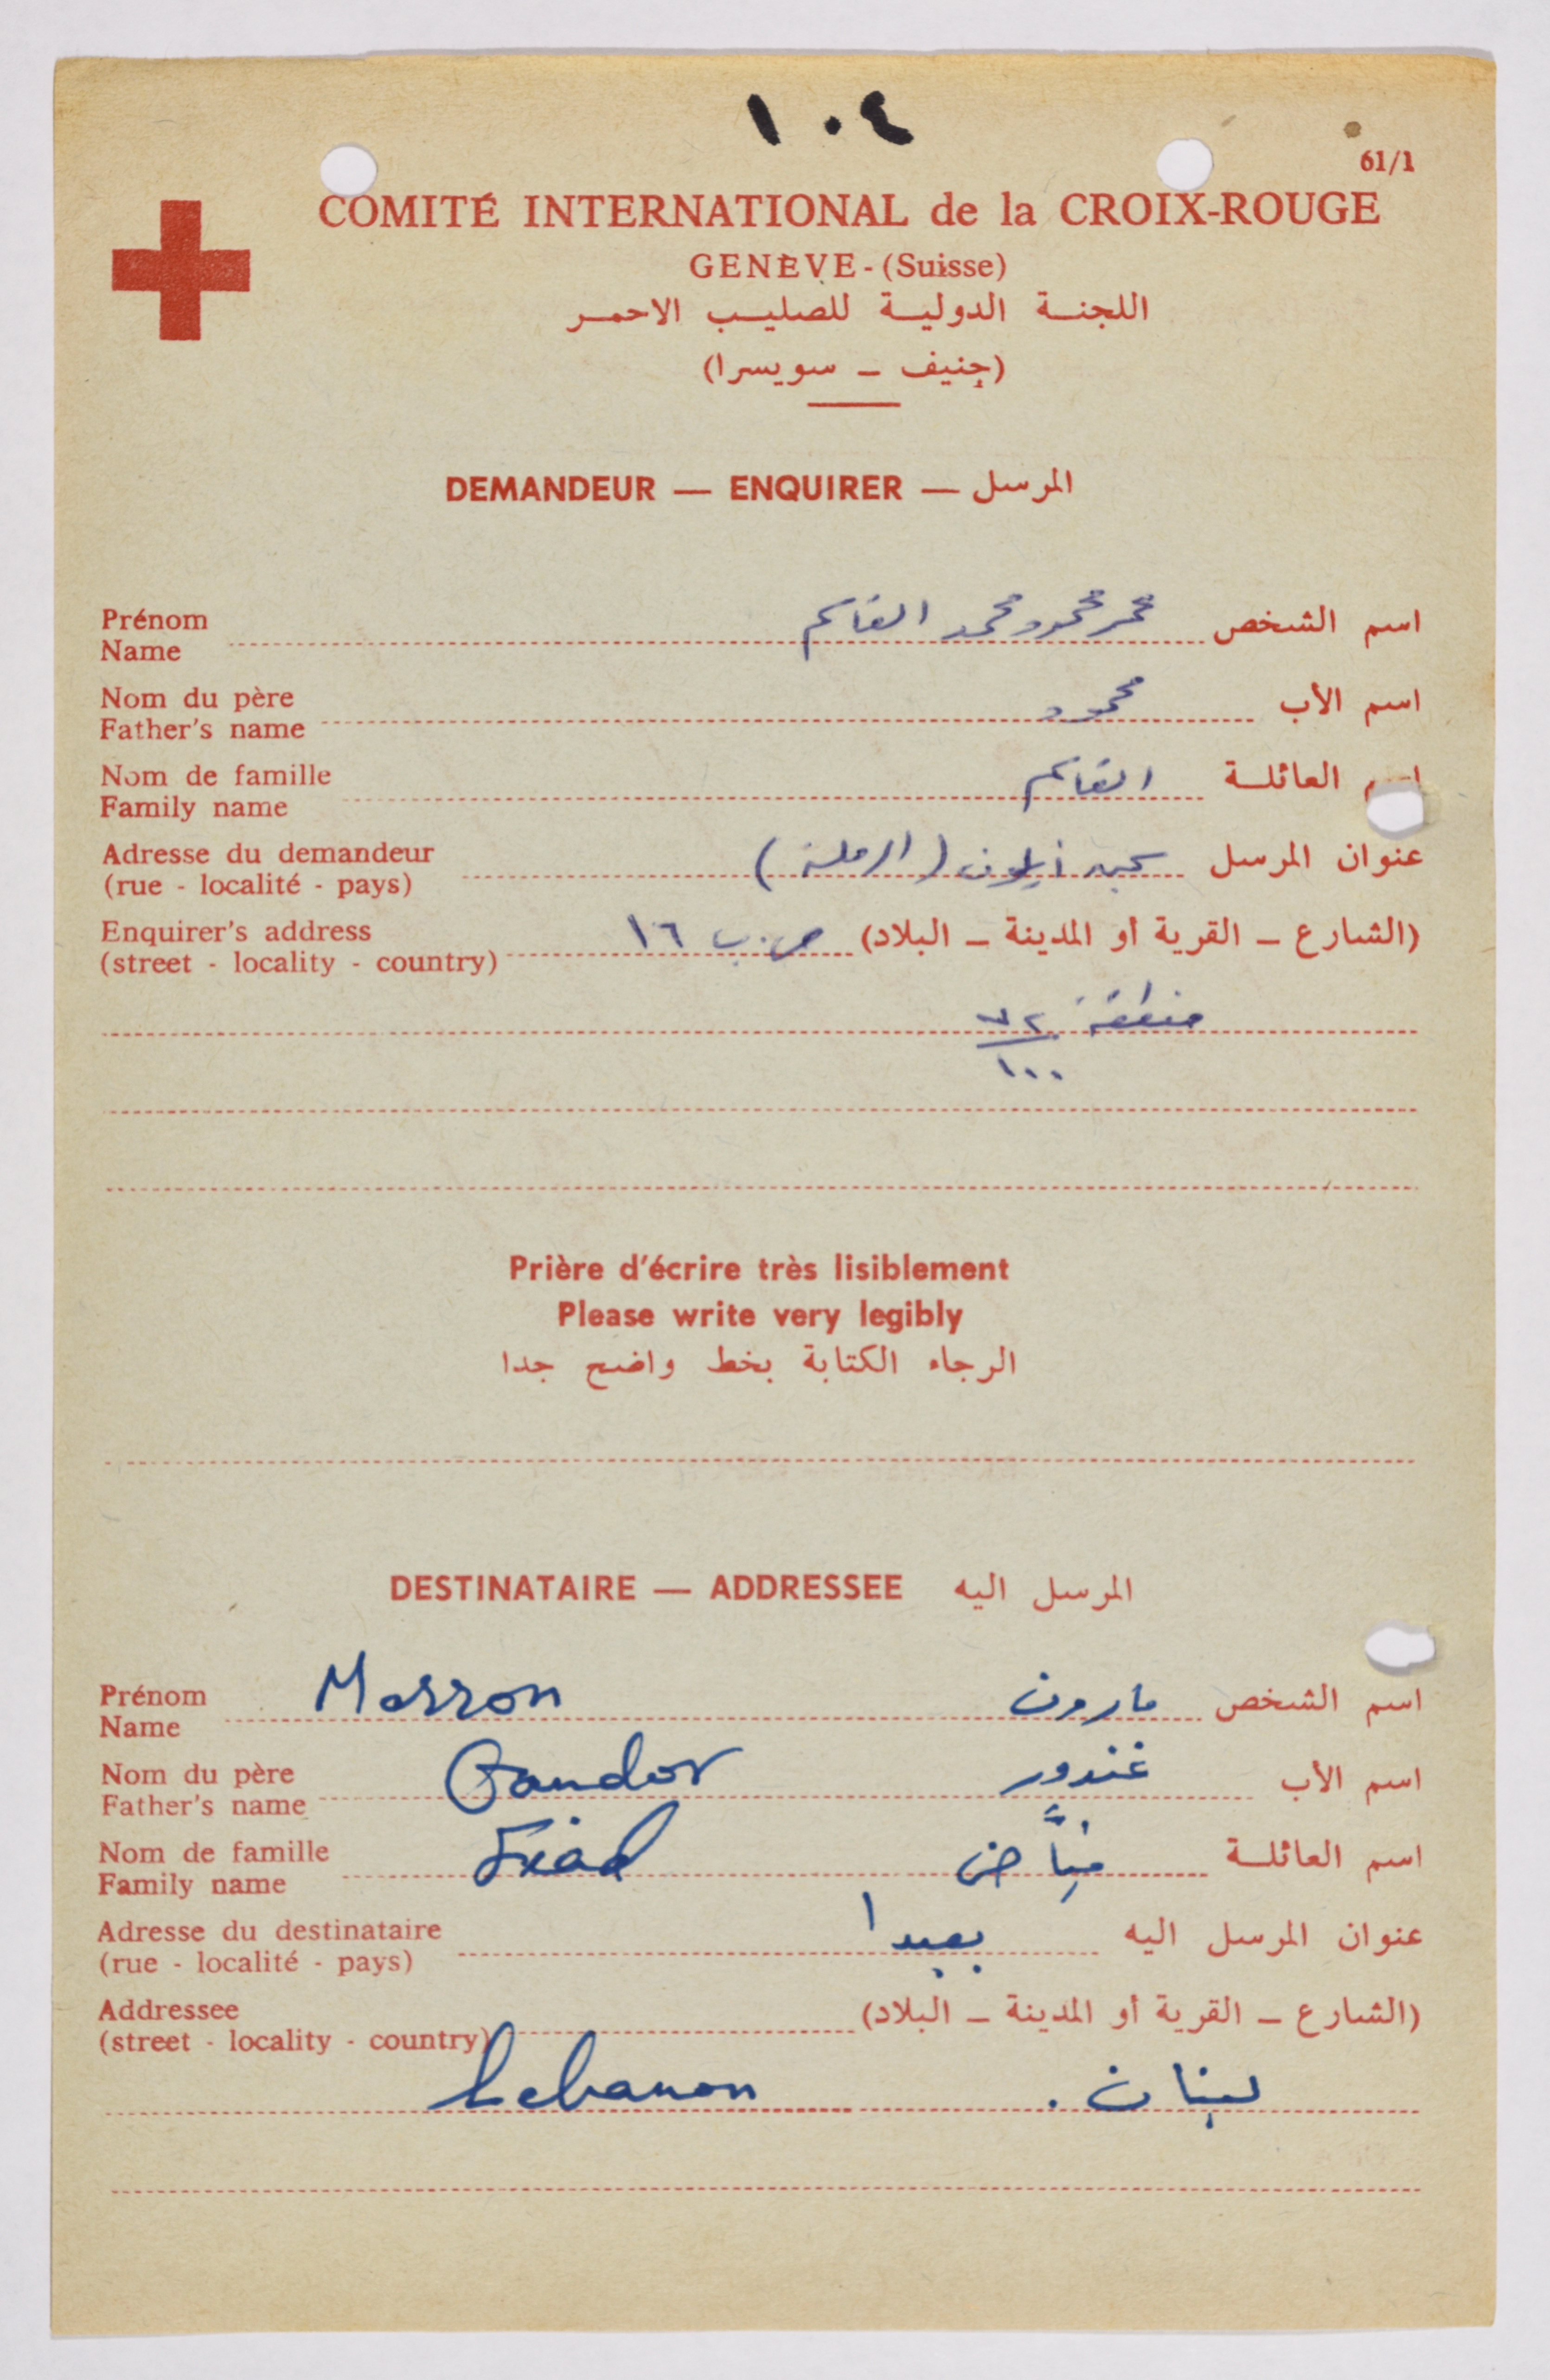 ١٠٤
61/1
COMITÉ INTERNATIONAL de la CROIX-ROUGE
GENÈVE - (Suisse)
اللجنة الدولية للصليب الاحمر
(جنيف – سويسرا)
DEMANDEUR — ENQUIRER — المرسل
Prénom اسم الشخص محمود محمد القاسم
Name
Nom du père اسم الأب محمود
Father's name
Nom de famille اسم العائلة القاسم
Family name
Adresse du demandeur عنوان المرسل سجن أيلون (الرملة)
(rue - localité - pays)
Enquirer's address (الشارع – القرية أو المدينة – البلاد) ص.ب ١٦
(street - locality - country)
منطقة ٧٢
١٠٠
Prière d'écrire très lisiblement
Please write very legibly
الرجاء الكتابة بخط واضح جدا
DESTINATAIRE — ADDRESSEE المرسل اليه
Prénom Marron اسم الشخص مارون
Name
Nom du père Gandor اسم الأب غندور
Father's name
Nom de famille اسم العائلة
Family name
Adresse du destinataire عنوان المرسل اليه بعبدا
(rue - localité - pays)
Addressee (الشارع – القرية أو المدينة – البلاد)
(street - locality - country)
Lebanon لبنان .